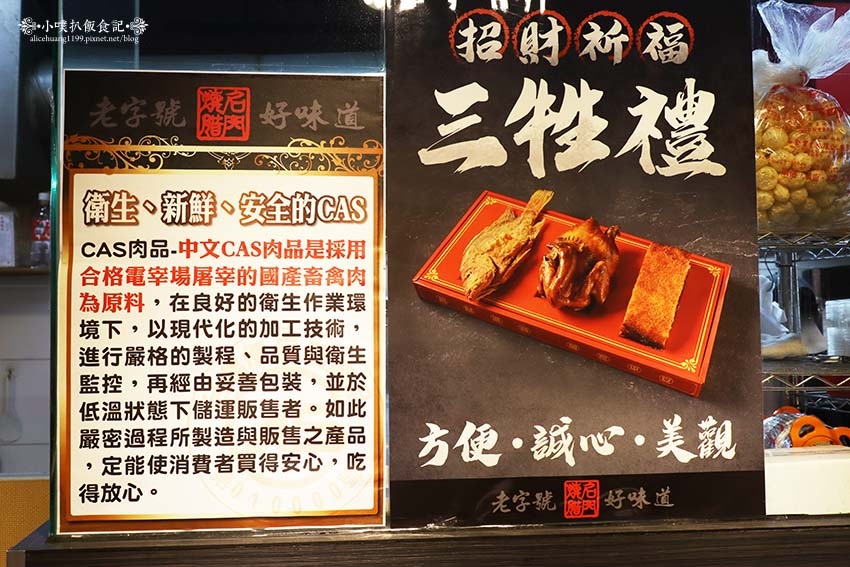 小噗扒飯食記
alicehuang1199.pixnet.net/blog
老字號 名門燒腊 好味道
衛生、新鮮、安全的CAS
CAS肉品-中文CAS肉品是採用
合格電宰場屠宰的國產畜禽肉
為原料，在良好的衛生作業環
境下，以現代化的加工技術，
進行嚴格的製程、品質與衛生
監控，再經由妥善包裝，並於
低溫狀態下儲運販售者。如此
嚴密過程所製造與販售之產品
，定能使消費者買得安心，吃
得放心。
招財祈福
三牲禮
方便·誠心·美觀
老字號 名門燒腊 好味道